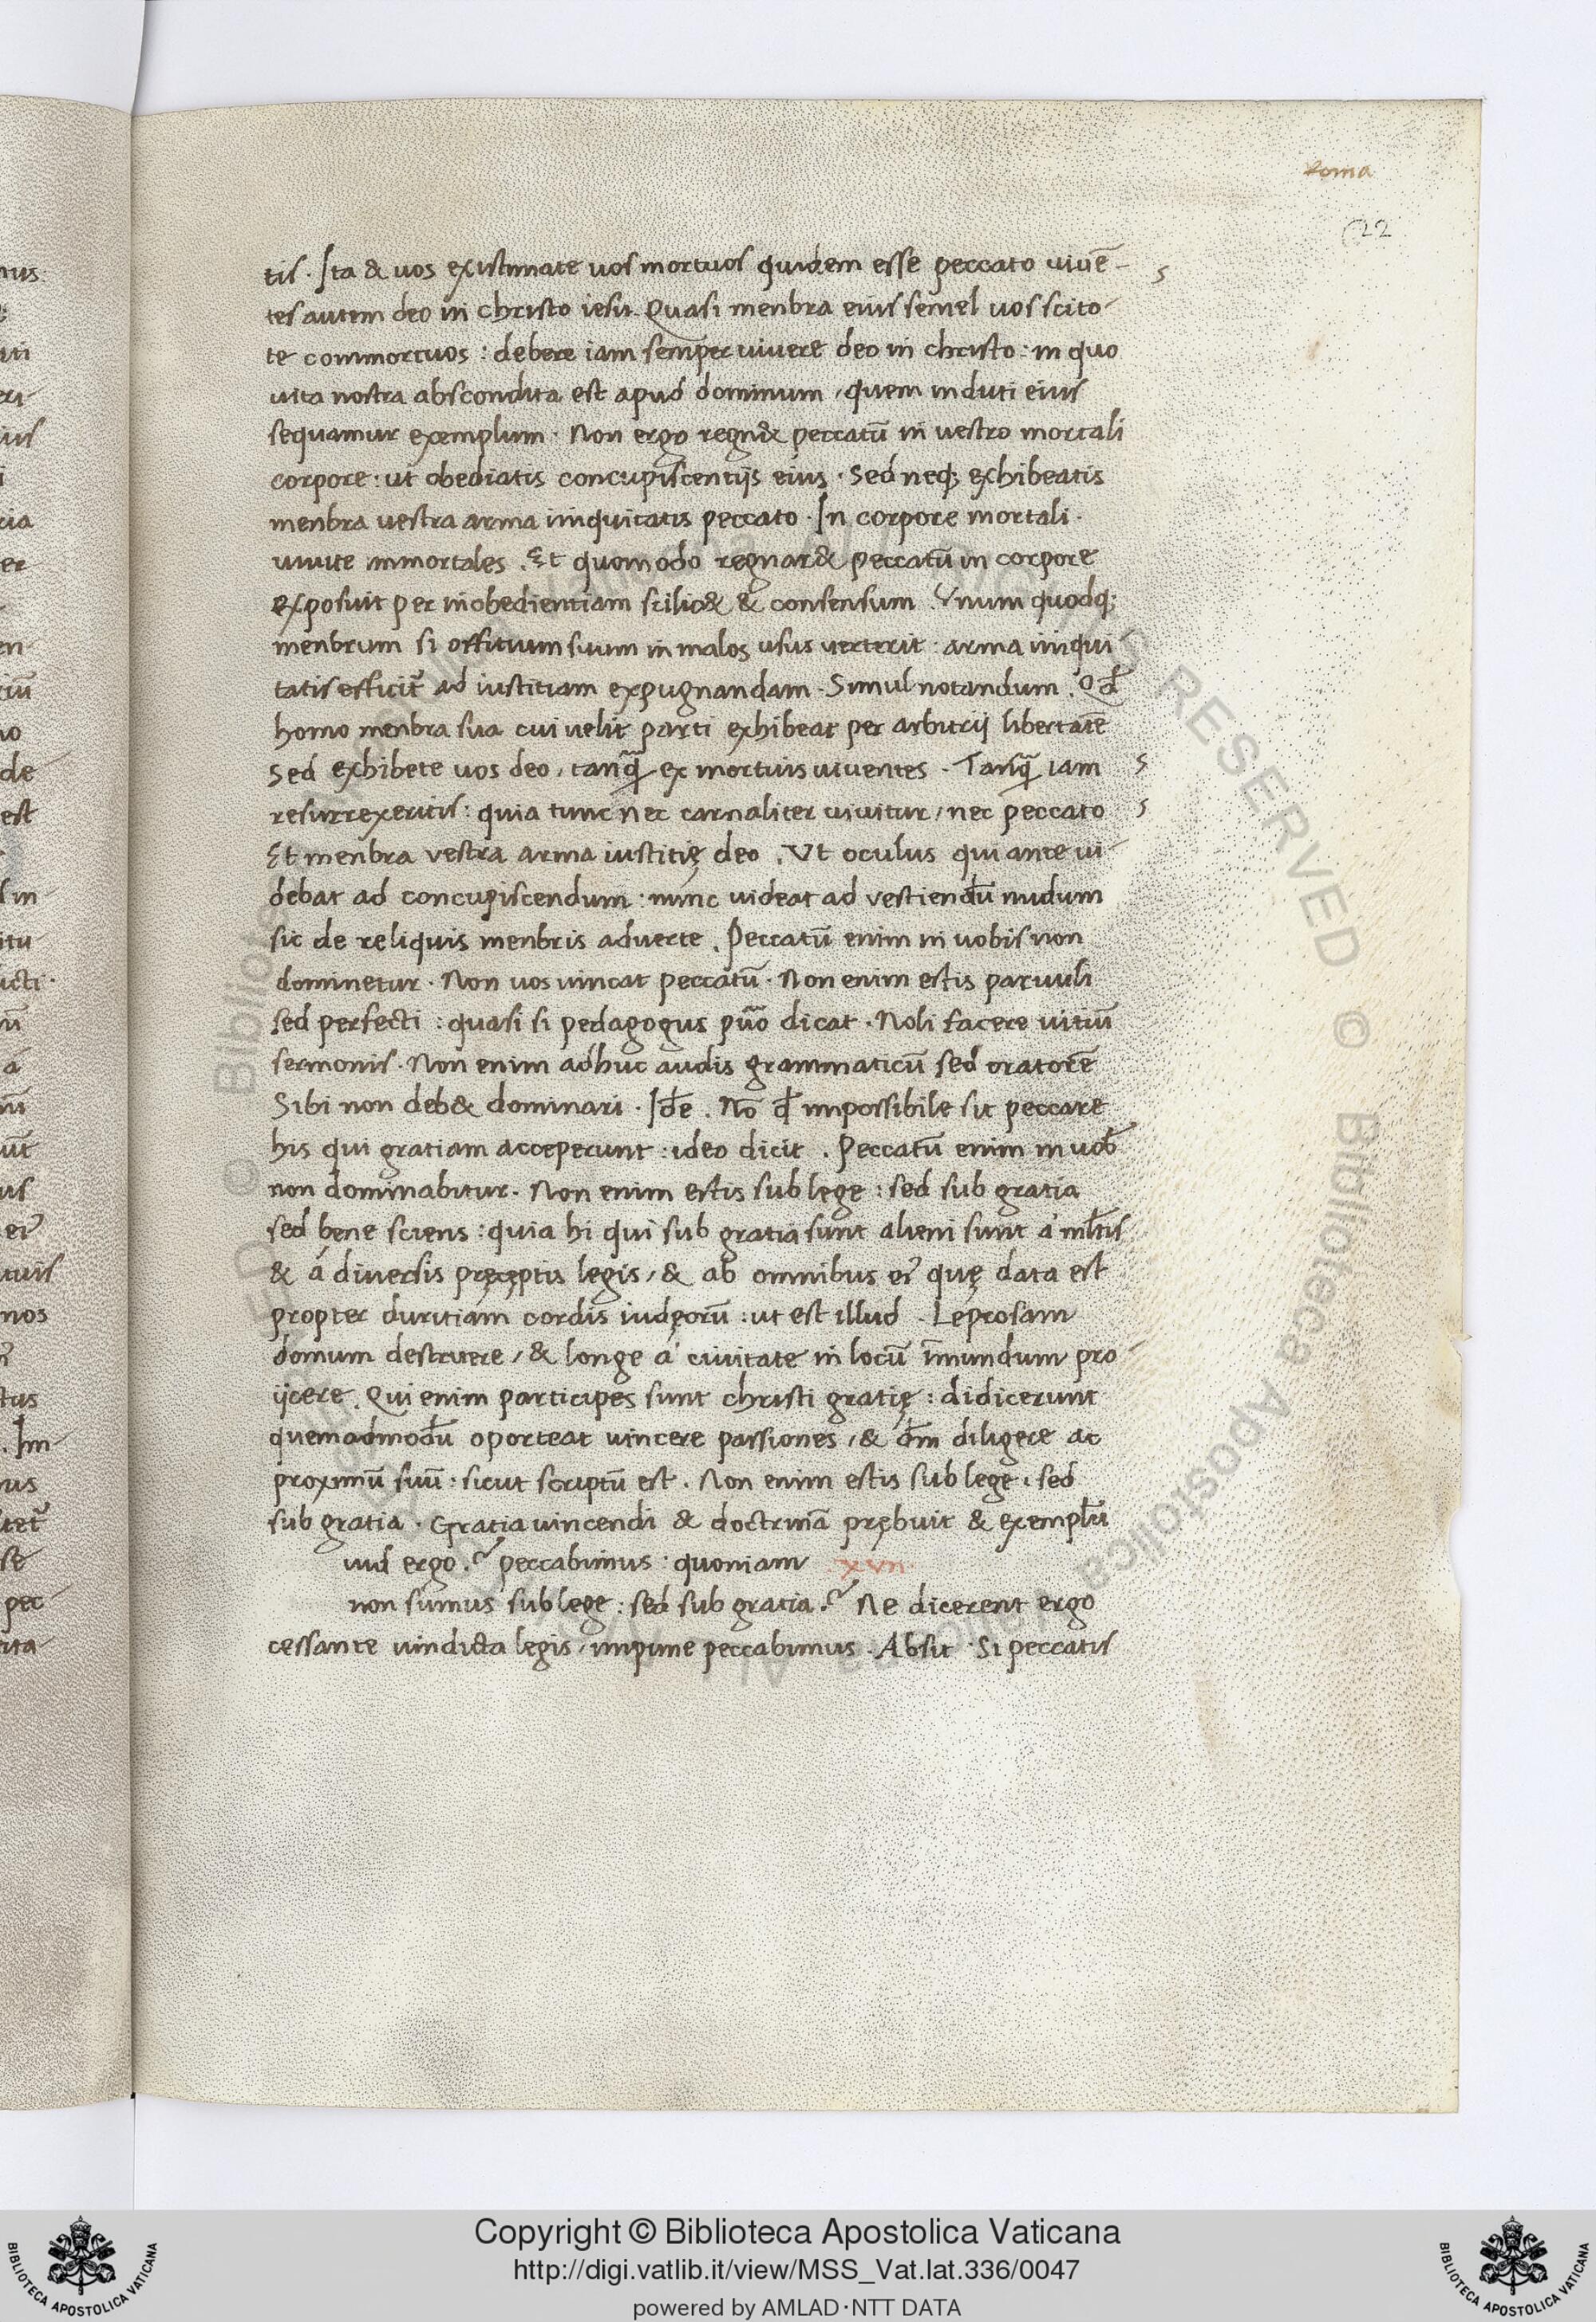 Roma
22
tis. Ita & uos existimate uos mortuos quidem esse peccato uiuē-
tes autem deo in christo iesu. Quasi menbra eius semel uos scito-
te commortuos : debere iam semper uiuere deo in christo : in quo
uita nostra abscondita est apud dominum, quem induti eius
sequamur exemplum. Non ergo regn& peccatū in uestro mortali
corpore : ut obediatis concupiscentijs eius. Sed neq; exhibeatis
menbra uestra arma iniquitatis peccato. In corpore mortali.
uiuite inmortales. Et quomodo regnar& peccatū in corpore
exposuit per inobedientiam scilic& & consensum. Vnum quodq;
menbrum si offitium suum in malos usus uerterit : arma iniqui-
tatis efficit̄ ad iustitiam expugnandam. Simul notandum. Qđ
homo menbra sua cui uelit parti exhibeat per arbitrij libertatē
Sed exhibete uos deo, tanq̄ ex mortuis uiuentes. Tanq̄ iam
resurrexeritis : quia tunc nec carnaliter uiuitur, nec peccato
Et menbra vestra arma iustitię deo. Vt oculus qui ante ui-
debat ad concupiscendum : nunc uideat ad vestiendū nudum
sic de reliquis menbris aduerte. Peccatū enim in uobis non
dominetur. Non uos uincat peccatū. Non enim estis paruuli
sed perfecti : quasi si pedagogus puō dicat. Noli facere uitiū
sermonis. Non enim adhuc audis grammaticū sed oratorē
Sibi non deb& dominari. Iđe. Nō qđ impossibile sit peccare
his qui gratiam acceperunt : ideo dicit. Peccatū enim in uob̄
non dominabitur. Non enim estis sub lege : sed sub gratia
sed bene sciens : quia hi qui sub gratia sunt alieni sunt á ml̄tis
& á diuersis pręceptis legis, & ab omnibus eī quę data est
propter duritiam cordis iudęorū : ut est illud. Leprosam
domum destruere, & longe á ciuitate in locū īmundum pro-
ijcere. Qui enim participes sunt christi gratię : didicerunt
quemadmodū oporteat uincere passiones, & dm̄ diligere ac
proximū suū : sicut scriptū est. Non enim estis sub lege, sed
sub gratia. Gratia uincendi & doctrinā prębuit & exemplū
uid ergo? peccabimus : quoniam xvii
non sumus sub lege : sed sub gratia? Ne dicerent ergo
cessante uindicta legis, impune peccabimus. Absit. Si peccatis
Copyright © Biblioteca Apostolica Vaticana
http://digi.vatlib.it/view/MSS_Vat.lat.336/0047
powered by AMLAD·NTT DATA
BIBLIOTECA APOSTOLICA VATICANA
BIBLIOTECA APOSTOLICA VATICANA